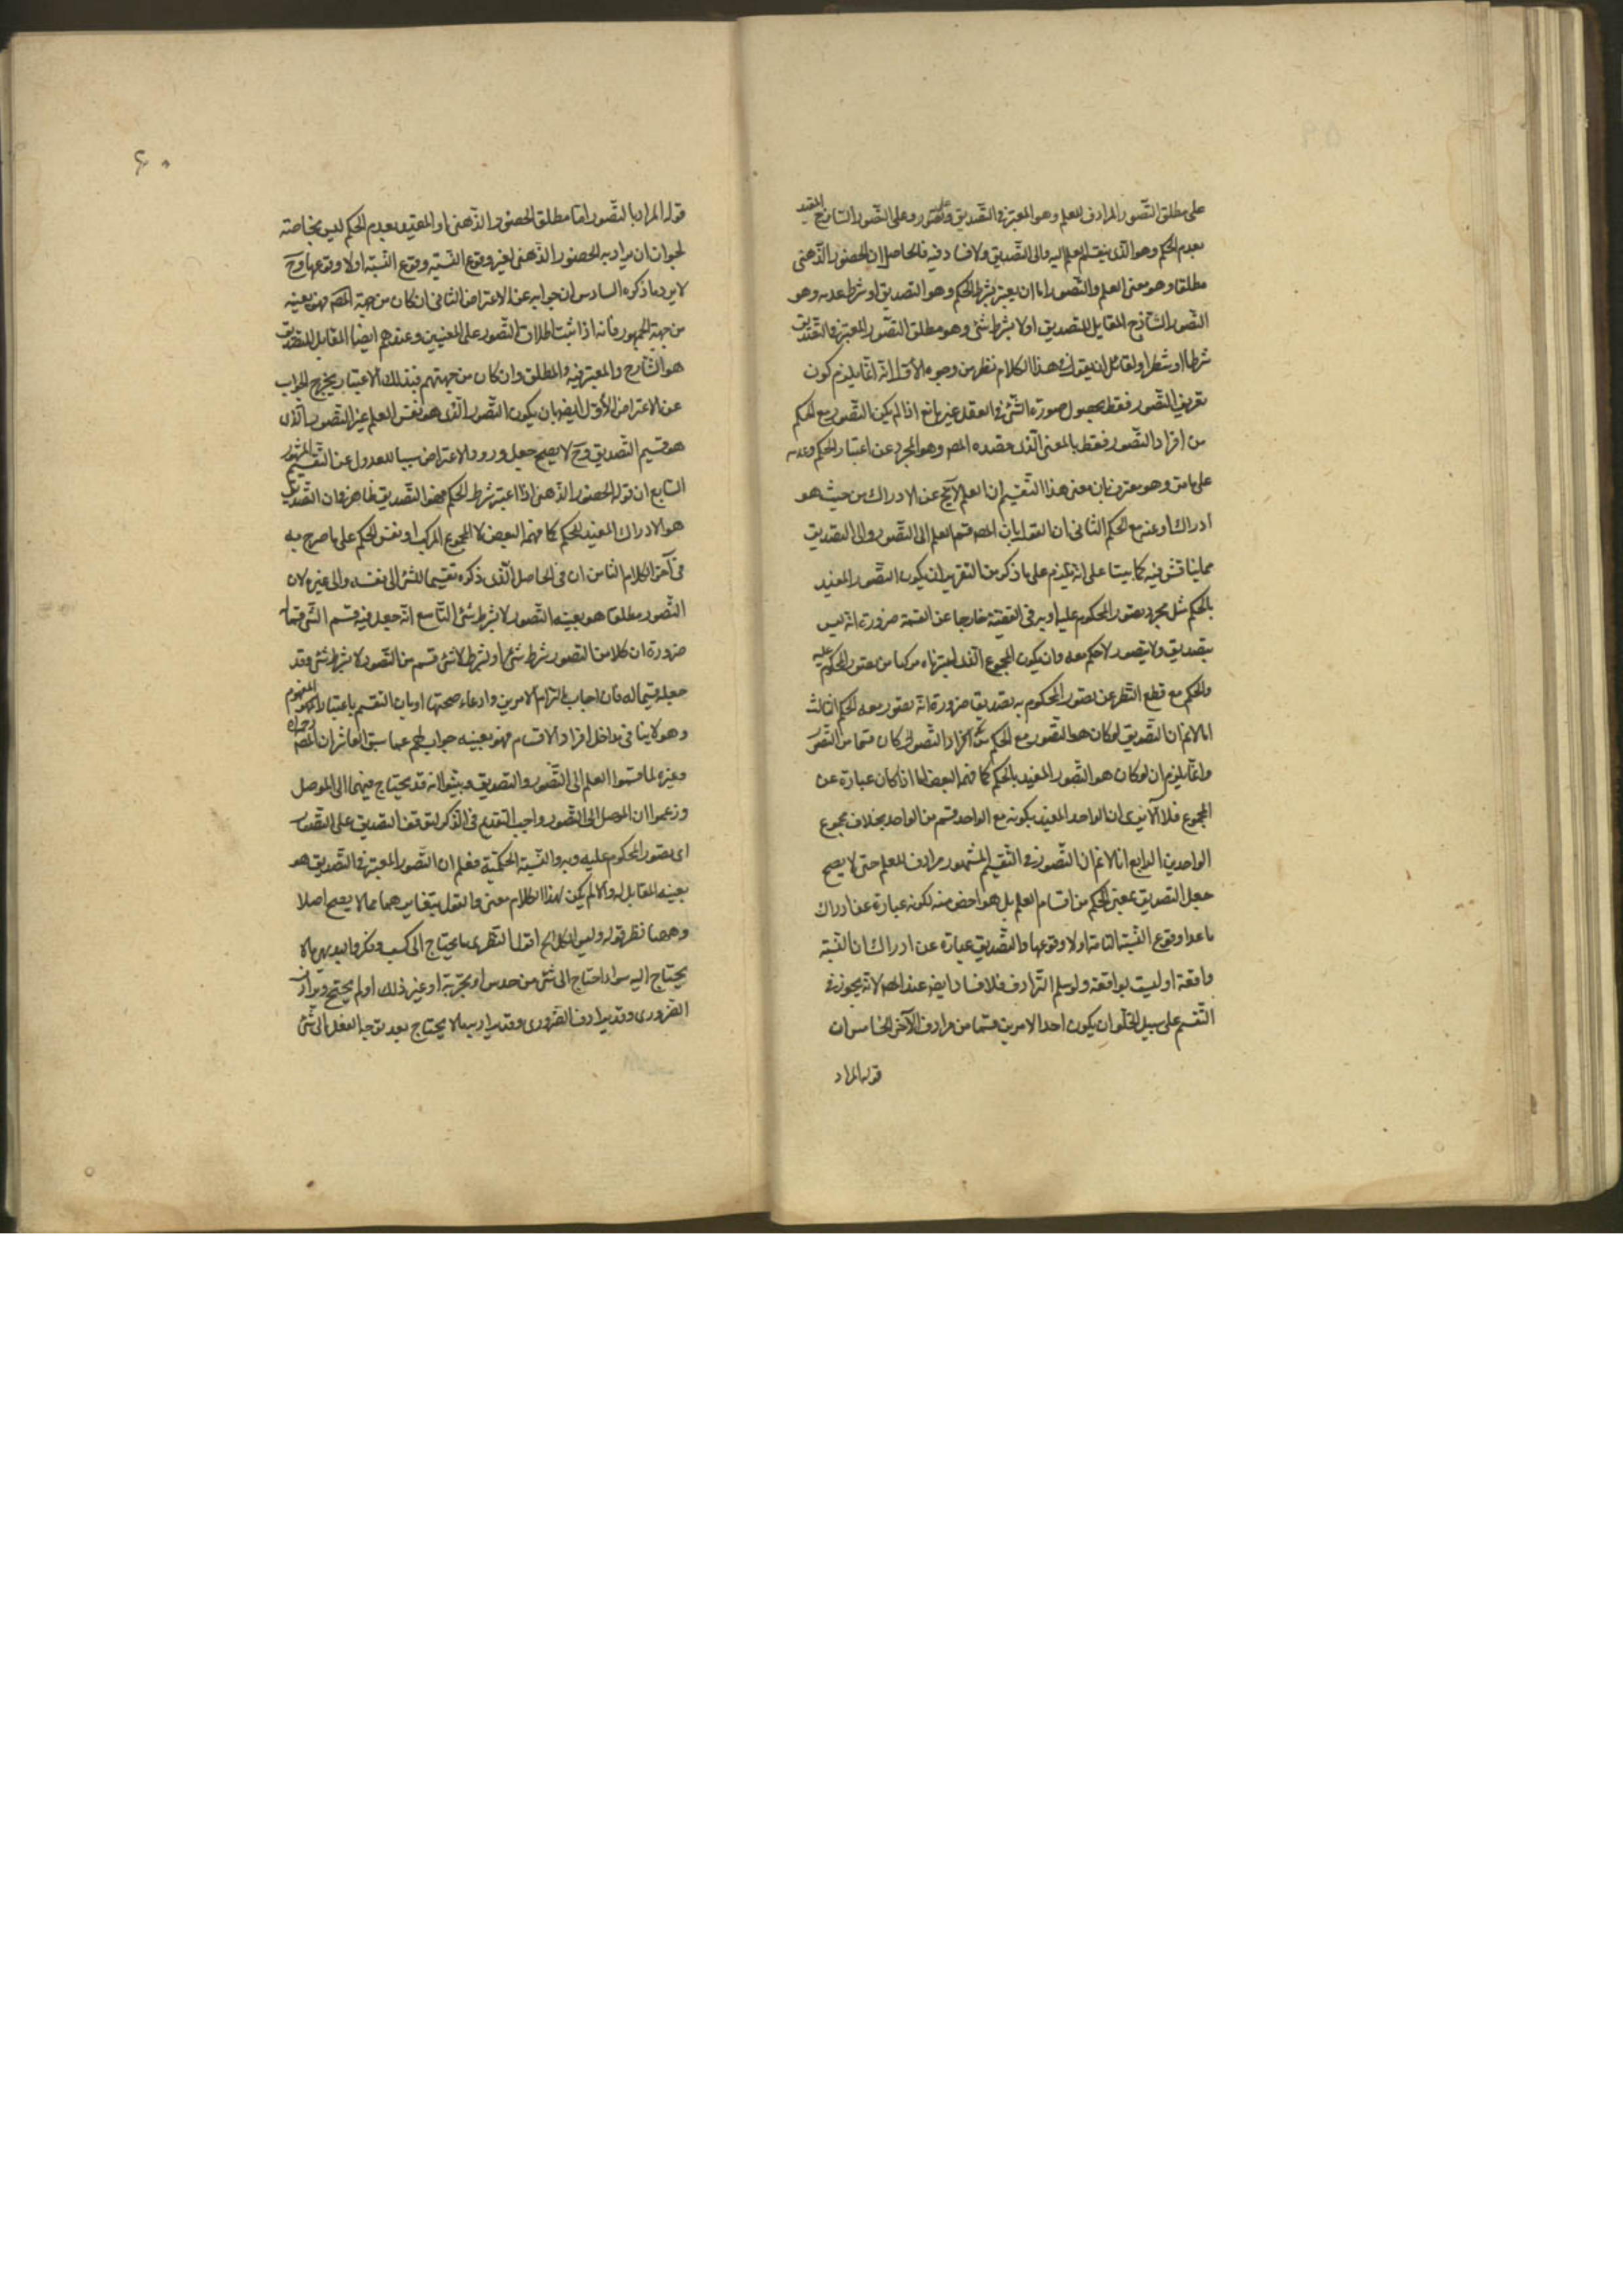 على مطلق التصور المرادف للعلم وهو المعتبر فى التصديق وعلى التصور الساذج المقيد
بعدم الحكم وهو الذى ينقسم العلم اليه والى التصديق ولا فساد فيه فالحاصل ان الحضور الذهنى
مطلقا وهو معنى العلم والتصور اما ان يعتبر بشرط الحكم وهو التصديق او بشرط عدمه وهو
التصور الساذج المقابل للتصديق او لا بشرط شئ وهو مطلق التصور المعتبر فى التصديق
شرطا او شطرا ولقائل ان يقول فى هذا الكلام نظر من وجوه الأول انه انما يلزم كون
تعريف التصور فقط بحصول صورة الشئ فى العقل غير مانع اذا لم يكن التصور مع الحكم
من افراد التصور فقط بالمعنى الذى قصده المص وهو المجرد عن اعتبار الحكم وعدمه
على ما مر وهو معترف بان معنى هذا التقسيم ان العلم لا يخ عن الادراك من حيث هو
ادراك او عنه مع الحكم الثانى ان القول بان المص قسم العلم الى التصور والى التصديق
مما يناقش فيه كما بينا على انه يلزم على ما ذكر من التقرير ان يكون التصور المقيد
بالحكم مثل مجرد تصور المحكوم عليه او به فى القضية خارجا عن القسمة ضرورة انه ليس
بتصديق ولا تصور لا حكم معه وان يكون المجموع الذى اعتبرناه مركبا من تصور المحكوم عليه
والحكم مع قطع النظر عن تصور المحكوم به تصديقا ضرورة انه تصور معه الحكم الثالث
انا لا نم ان التصديق لو كان هو التصور مع الحكم من افراد التصور كان قسما من التصور
وانما يلزم ان لو كان هو التصور المقيد بالحكم كما فهمه البعض اما اذا كان عبارة عن
المجموع فلا الا يرى ان الواحد المقيد بكونه مع الواحد قسم من الواحد بخلاف مجموع
الواحدين الرابع انا لا نم ان التصور فى التقسيم المشهور مرادف للعلم حتى لا يصح
جعل التصديق بمعنى الحكم من اقسام العلم بل هو اخص منه لكونه عبارة عن ادراك
ما عدا وقوع النسبة التامة او لا وقوعها والتصديق عبارة عن ادراك ان النسبة
واقعة او ليست بواقعة ولو سلم الترادف فلا فساد ايضا عند المص لانه يجوز فى
التقسيم على سبيل الخلو ان يكون احد الامرين قسما من مرادف الآخر الخامس ان
قوله المراد
٦٠
قوله المراد بالتصور اما مطلق الحضور الذهنى او المقيد بعدم الحكم ليس بخاصة
لجواز ان يراد به الحضور الذهنى لغير وقوع النسبة او لا وقوعها وح
لا يرد ما ذكره السادس ان جوابه عن الاعتراض الثانى ان كان من جهة المص فهو بعينه
من جهة الجمهور فانه اذا ثبت اطلاق التصور على المعنيين وعندهم ايضا المقابل للتصديق
هو الساذج والمعتبر فيه المطلق وان كان من جهتهم فبذلك الاعتبار يخرج الجواب
عن الاعتراض الأول ايضا بان يكون التصور الذى هو نفس العلم غير التصور الذى
هو قسيم التصديق وح لا يصح جعل ورود الاعتراض سببا للعدول عن التقسيم المشهور
السابع ان قوله الحضور الذهنى اذا اعتبر بشرط الحكم فهو التصديق ظاهره ان التصديق
هو الادراك المقيد بالحكم كما فهمه البعض لا المجموع المركب او نفس الحكم على ما صرح به
فى آخر الكلام الثامن ان فى الحاصل الذى ذكره تقسيما للشئ الى نفسه والى غيره لان
التصور مطلقا هو بعينه التصور لا بشرط شئ التاسع انه جعل فيه قسم الشئ قسيما
ضرورة ان كلا من التصور بشرط شئ او بشرط لا شئ قسم من التصور لا بشرط شئ وقد
جعله قسيما له فان اجاب بالتزام الامرين وادعاء صحتها او بان التقسيم باعتبار المفهوم
وهو لا ينافى تداخل افراد الاقسام فهو بعينه جواب لهم عما سبق العاشر ان المص رحمه الله
وغيره لما قسموا العلم الى التصور والتصديق وبينوا انه قد يحتاج فيهما الى الموصل
وزعموا ان الموصل الى التصور واجب التقديم فى الذكر لتوقف التصديق على التصور
اى تصور المحكوم عليه وبه والنسبة الحكمية فعلم ان التصور المعتبر فى التصديق هو
بعينه المقابل له والا لم يكن لهذا الكلام معنى فالقول بتغايرهما مما لا يصح اصلا
وههنا نظر قوله وليس الكل الخ اقول النظرى ما يحتاج الى كسب وفكر والبديهى ما لا
يحتاج اليه سواء احتاج الى شئ من حدس او تجربة او غير ذلك او لم يحتج ويرادف
الضرورى وقد يرادف الضرورى وقد يراد به ما لا يحتاج بعد توجه العقل الى شئ